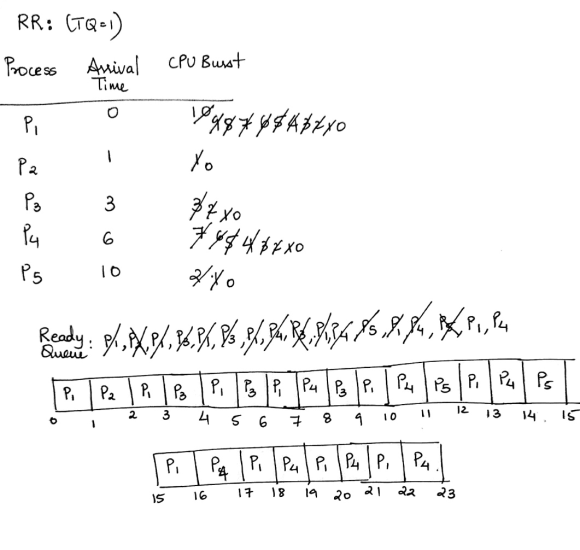 RR: (TQ=1)
Process Arrival Time CPU Burst
P1 0 10 9 8 7 6 5 4 3 2 1 0
P2 1 1 0
P3 3 3 2 1 0
P4 6 7 6 5 4 3 2 1 0
P5 10 2 1 0
Ready Queue: P1, P2, P1, P3, P1, P3, P1, P4, P3, P1, P4, P5, P1, P4, P5, P1, P4
P1 P2 P1 P3 P1 P3 P1 P4 P3 P1 P4 P5 P1 P4 P5
0 1 2 3 4 5 6 7 8 9 10 11 12 13 14 15
P1 P4 P1 P4 P1 P4 P1 P4
15 16 17 18 19 20 21 22 23